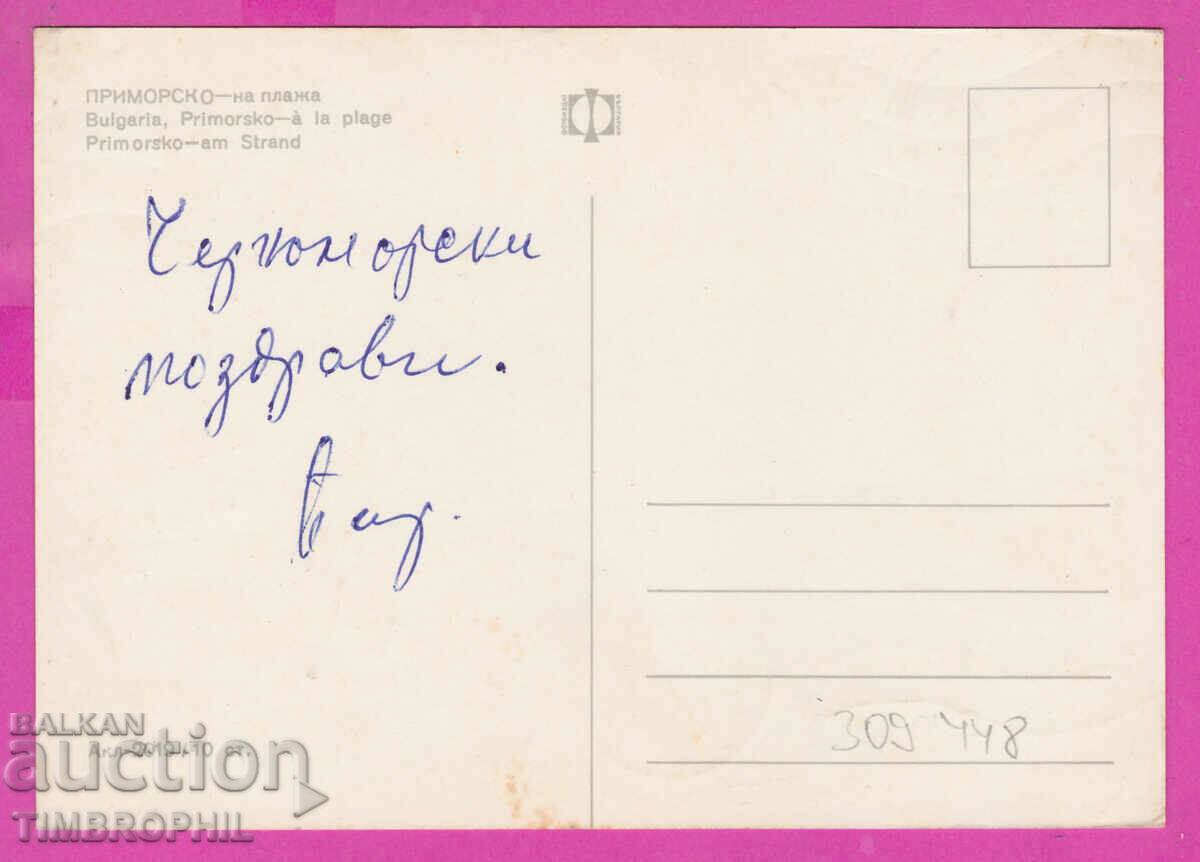 ПРИМОРСКО—на плажа
Bulgaria, Primorsko—à la plage
Primorsko—am Strand
ФОТОИЗДАТ
БЪЛГАРИЯ
Черноморски
поздрави.
309448
Акл-2019 10 ст.
BALKAN
auction
TIMBROPHIL